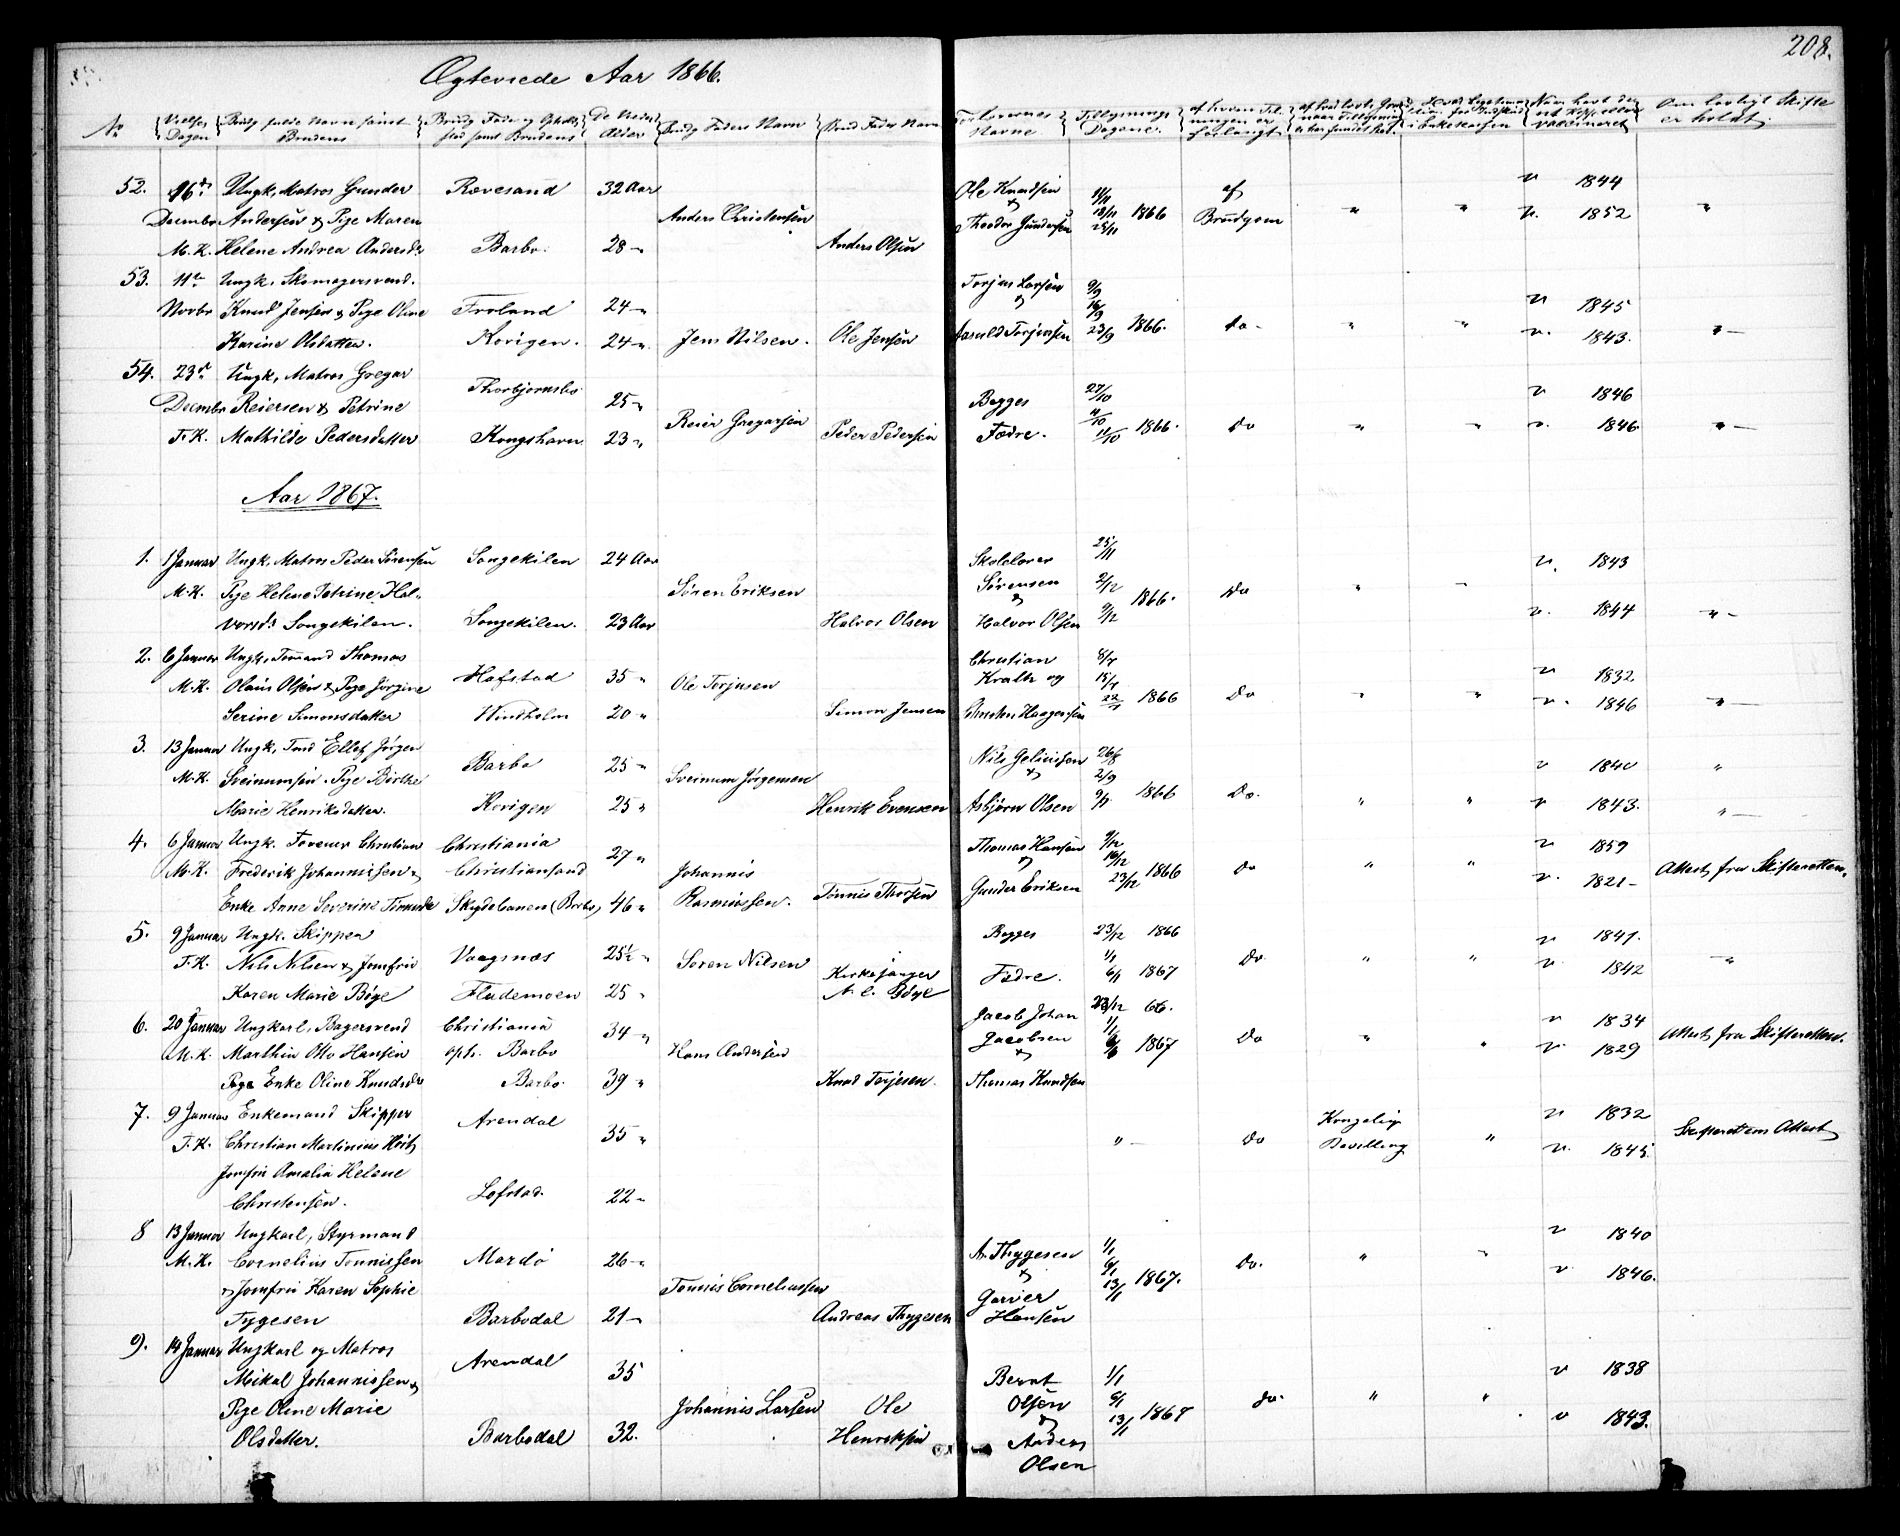 208.
Ægteviede Aar 1866.
No
Vielses Dagen
Brudg. fulde Navn samt Brudens
De Viedes Alder
Brudg. Faders Navn
Brud. Faders Navn
Forlovernes Navne
Tillysnings Dagene.
Naar havt de nat. Kopper eller vaccineret
Om lovligt Skifte er holdt.
52. 16de Ungk. Matros Gunder Rævesand 32 Aar Ole Knudsen 1844
Decembr Andersen & Pige Maren Anders Christensen & Theodor Gundersen 18/11 25/11 1866 af Brudgom " " v. 1852 "
M. K. Helene Andrea Andersdr Barbo. 28 " Anders Olsen
53. 11te Ungk. Skomagersvend. Torjus Larsen 9/9
Novbr Knud Jensen & Pige Oline Froland 24 " & 16/9 v 1845
Karine Olsdatter. Kovigen. 24 " Jens Nilsen. Ole Jensen Torjussen 23/9 1866. do - " " v. 1843. " -
54. 23de Ungk. Matros Gregar Thorbjørnsbo 25 " Begges 27/10 v 1846
Decembr Reiersen & Petrine Reier Gregarsen
T. K. Mathilde Pedersdatter Kongshavn 23 " Peder Pedersen Fædre. 11/10 1866. do " " v. 1846 " -
Aar 1867.
1. 1 Januar Ungk. Matros Peder Sørensen Songekilen 24 Aar Skolelærer 25/11 v. 1843
M. K. Pige Helene Petrine Hal- Søren Eriksen Sørensen 2/12 1866. do " -
vorsd. Songekilen. Songekilen. 23 Aar Halvor Olsen & Halvor Olsen 9/12 v. 1844 " -
2. 6 Januar Ungk. Tømmand Thomas Christian 8/7
M. K. Olaus Olsen & Pige Jørgine Hafstad 35 " Ole Torjusen Krath og 15/7 v 1832.
Serine Simonsdatter Vindholm 20 " Simon Jensen Christen Haagensen 22/7 1866 do " " v. 1846 " -
3. 13 Januar Ungk. Tmd Ellef Jørgen Barbo 25 " Nils Geliusen 26/8 v 1840 "
M. K. Sveinumsen. Pige Birthe Sveinum Jørgensen & 2/9
Marie Henriksdatter. Kovigen 25 " Henrik Evensen Asbjørn Olsen 9/9 1866 do. " " v 1843. " -
4. 6 Januar Ungk. Christian Christiania 27 " Thomas Hansen 9/12 v 1859
M. K. Frederik Johannissen & Christiansand Johannis & 16/12 1866 do " " Attest fra Skifteretten.
Enke Anne Severine Skydebanen (Barbo) 46 " Rasmussen. Tønnis Thorsen Gunder Eriksen 23/12 v. 1821 -
5. 9 Januar Ungk. Skipper Begges 23/12 1866 v 1841.
T. K. Nils Nilsen & Jomfru Vaagsnæs 25½ " Søren Nilsen 1/1 do " " v. 1842 "
Karen Marie Bøge Flademoen 25 " Kirkesanger Fædre. 6/1 1867
6. 20 Januar Ungkarl, Bagersvend Christiania 34 " Jacob Johan 23/12 66. v 1834
M. K. Marthin Otto Hansen oph. Barbo Hans Andersen Jacobsen 1/1 6/1 1867 do " " v. 1829 Attest fra Skifteretten.
Pige Enke Oline Knudsdr Barbo. 39 " Knud Terjesen. & Thomas Knudsen
7. 9 Januar Enkemand Skipper Arendal 35 " Kongelig v 1832
T. K. Christian Martinius " - do Bevilling " v. 1845. Skifterettens Attest
Jomfru Amalia Helene
Christensen. Lofstad. 22 "
8 13 Januar Ungkarl, Styrmand v 1840
M. K. Cornelius Tønnissen Mardø 26 " A. Thygesen 1/1 do. " "
& Jomfru Karen Sophie Tønnis Corneliussen & 6/1 13/1 1867. v 1846.
Tygesen Barbodal 21 " Andreas Thygesen Hansen
9. 14 Januar Ungkarl og Matros Arendal 35 v 1838
Mikal Johannissen & Bernt 1/1
Pige Oline Marie Johannis Larsen Ole Olsen 6/1 do. " "
Olsdatter. Barbodal 32. Henriksen & Anders 13/1 1867 v 1843.
Olsen